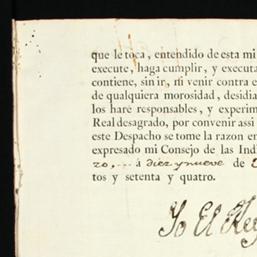 que le toca, entendido de esta mi
execute, haga cumplir, y executa
contiene, sin ir, ni venir contra e
de qualquiera morosidad, desidia
los haré responsables, y experim
Real desagrado, por convenir assi
este Despacho se tome la razon en
expresado mi Consejo de las Ind
ro,... à diez y nueve de
tos y setenta y quatro.
Yo El Rey